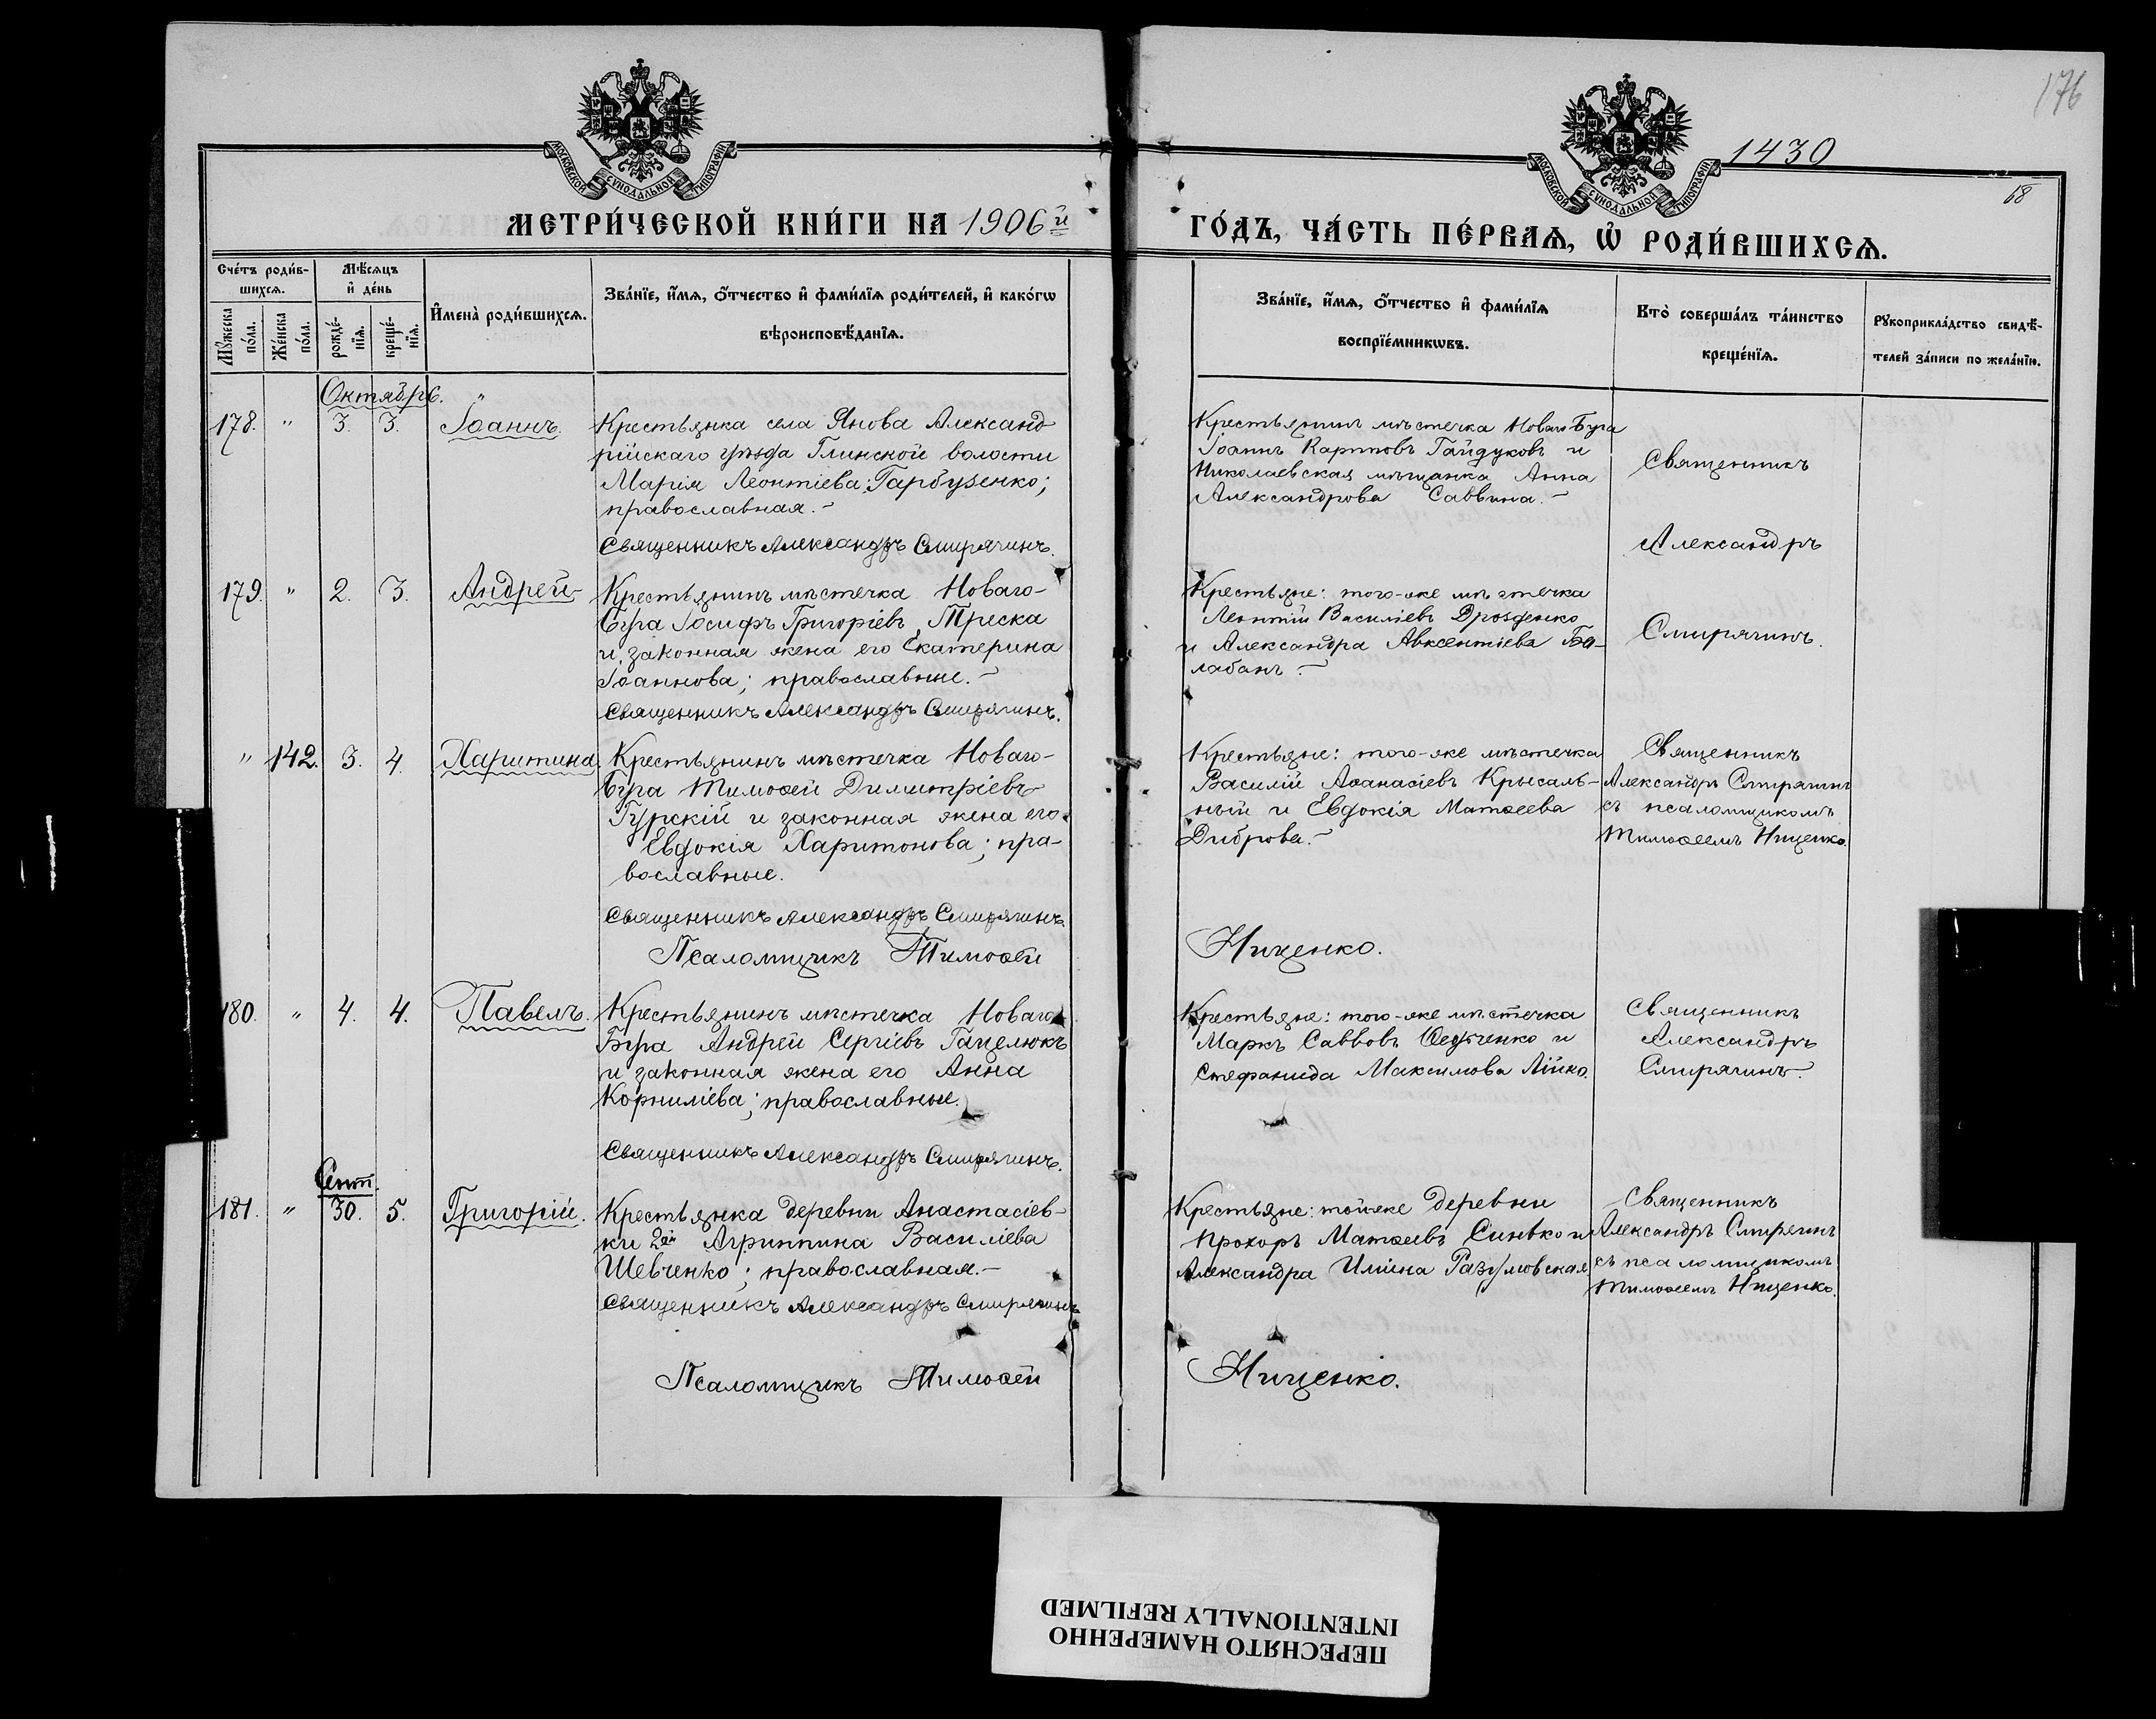 176
1430
18
МОСКОВСКОЙ СѴНОДАЛЬНОЙ ТИПОГРАФІИ
МОСКОВСКОЙ СѴНОДАЛЬНОЙ ТИПОГРАФІИ
МЕТРИ́ЧЕСКОЙ КНИ́ГИ НА 1906й
ГО́ДЪ, ЧА́СТЬ ПЕ́РВАѦ, Ѡ҆ РОДИ́ВШИХСѦ.
Сче́тъ роди́в-
шихсѧ.
Мѣ́сѧцъ
и҆ де́нь
Мꙋ́жеска по́ла.
Же́нска по́ла.
рожде́-нїѧ.
креще́-нїѧ.
И҆мена̀ роди́вшихсѧ.
Зва́нїе, и҆́мѧ, ѻ҆́тчество и҆ фами́лїѧ роди́телей, и҆ како́гѡ
вѣроисповѣ́данїѧ.
Зва́нїе, и҆́мѧ, ѻ҆́тчество и҆ фами́лїѧ
воспрїе́мникѡвъ.
Кто̀ соверша́лъ та́инство
креще́нїѧ.
Рꙋкоприкла́дство свидѣ́-
телей за́писи по жела́нїю.
Октябрь. "
178. " 3. 3. Іоаннъ.
Крестьянка села Янова Александ
рійскаго уѣзда Глинской волости
Марія Леонтіева Гарбузенко;
православная.
Священникъ Александръ Смирягинъ.
Крестьянинъ мѣстечка Новаго Буга
Іоаннъ Карповъ Гайдуковъ и
Николаевская мѣщанка Анна
Александрова Саввина.
Священникъ
Александръ
Смирягинъ.
179. " 2. 3. Андрей
Крестьянинъ мѣстечка Новаго-
Буга Іосифъ Григоріевъ Треска
и законная жена его Екатерина
Іоаннова; православные.
Священникъ Александръ Смирягинъ.
Крестьяне: того-же мѣстечка
Леонтій Василіевъ Дрозденко
и Александра Авксентіева Ба-
лабанъ.
" 142. 3. 4. Харитина.
Крестьянинъ мѣстечка Новаго-
Буга Тимоѳей Димитріевъ
Гурскій и законная жена его
Евдокія Харитонова; пра-
вославные.
Священникъ Александръ Смирягинъ.
Псаломщикъ Тимоѳей Нищенко.
Крестьяне: того-же мѣстечка
Василій Аѳанасіевъ Крысаль-
ный и Евдокія Матѳеева
Диброва.
Священникъ
Александръ Смирягинъ
съ псаломщикомъ
Тимоѳеемъ Нищенко.
180. " 4. 4. Павелъ.
Крестьянинъ мѣстечка Новаго
Буга Андрей Сергіевъ Гацелюкъ
и законная жена его Анна
Корниліева; православные.
Священникъ Александръ Смирягинъ.
Крестьяне: того-же мѣстечка
Маркъ Саввовъ Ѳедченко и
Стефанида Максимова
Священникъ
Александръ
Смирягинъ.
Сент.
181. " 30. 5. Григорій.
Крестьянка деревни Анастасіев-
ки 2ой Агриппина Василіева
Шевченко; православная.
Священникъ Александръ Смирягинъ
Псаломщикъ Тимоѳей Нищенко.
Крестьяне: той-же деревни
Прохоръ Матѳеевъ Синько и
Александра Иліина Разумовская
Священникъ
Александръ Смирягинъ
съ псаломщикомъ
Тимоѳеемъ Нищенко.
ПЕРЕСНЯТО НАМЕРЕННО
INTENTIONALLY REFILMED